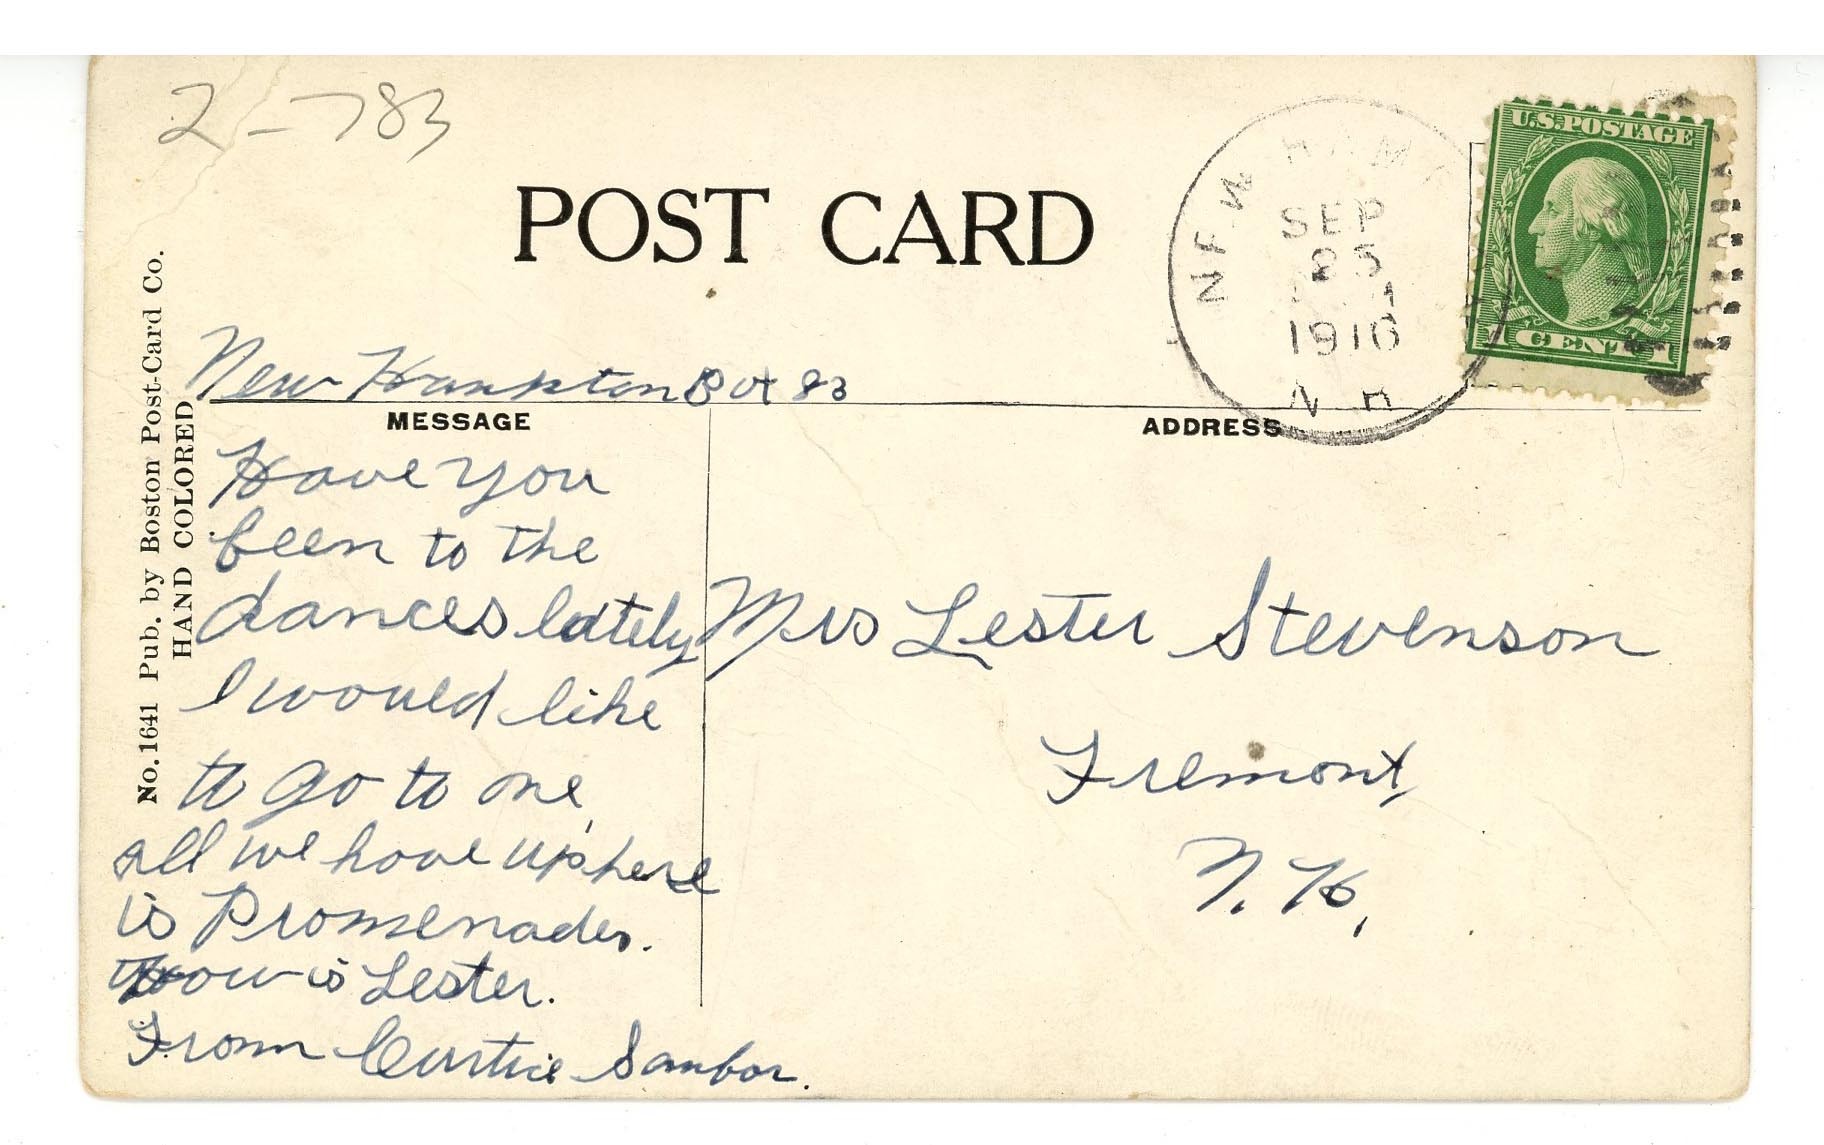 2-783
POST CARD
NEW HAM
SEP
25
1916
N H
U.S.POSTAGE
1 CENT 1
No. 1641 Pub. by Boston Post-Card Co.
HAND COLORED
New Hampton Box 83
MESSAGE
ADDRESS
Have you
been to the
dances lately
I would like
to go to one,
all we have up here
is Promenades.
How is Lester.
From Curtice Sanbor.
Mrs Lester Stevenson
Fremont,
N. H,